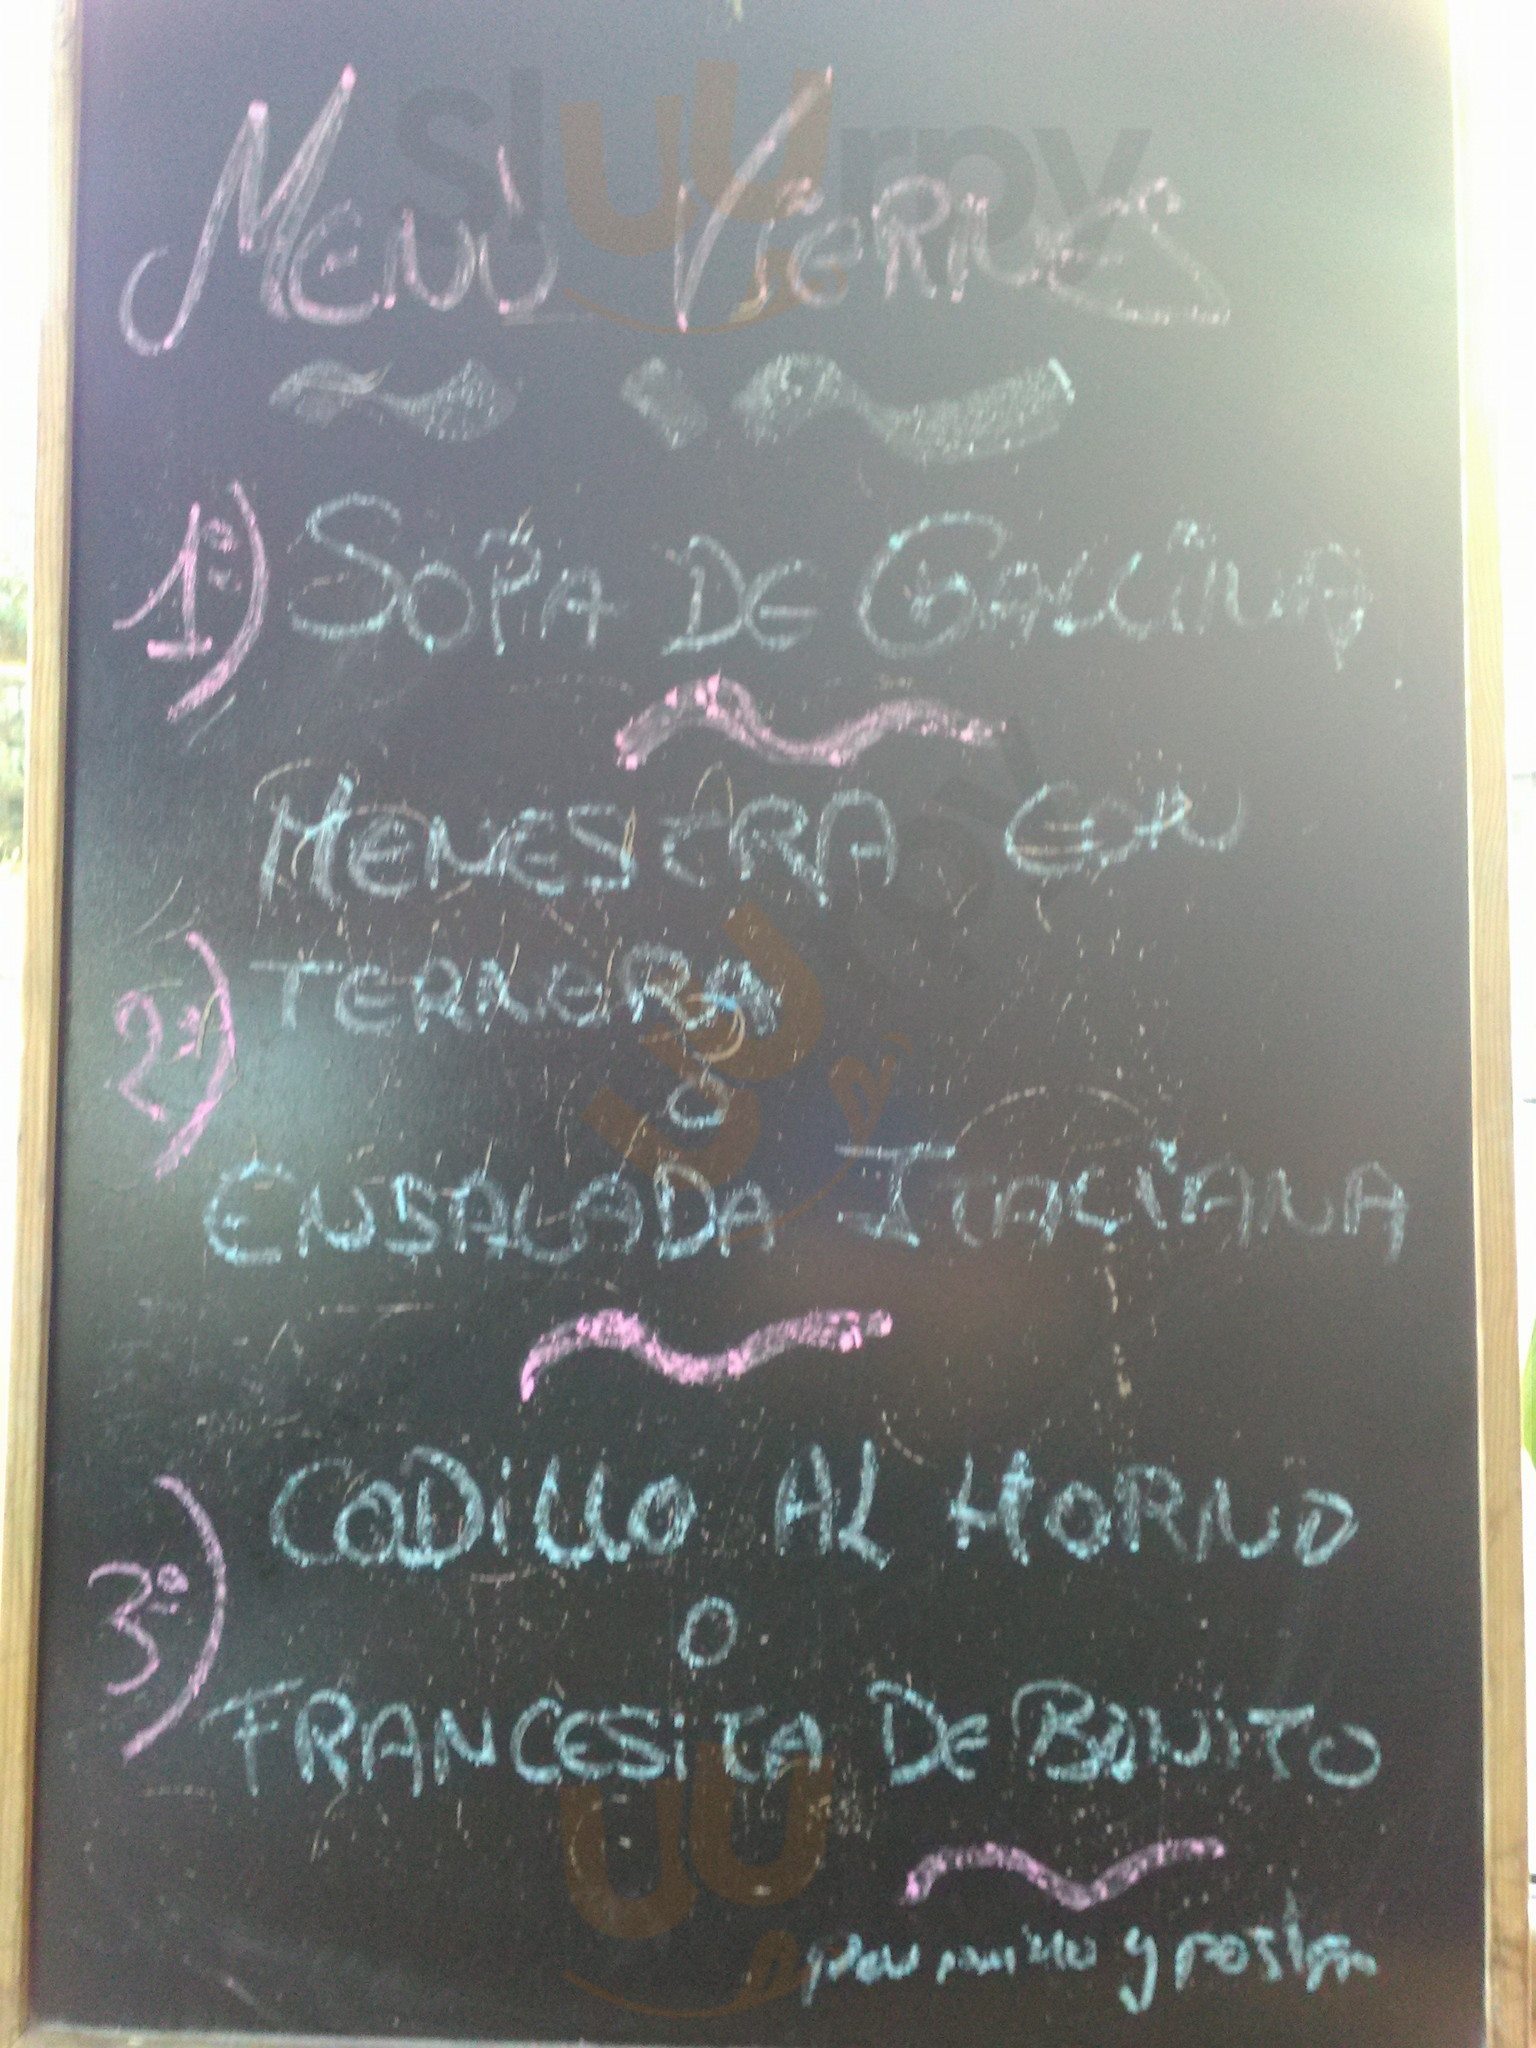 MENÙ VIERNES
1º) SOPA DE GALLINA
MENESTRA CON
2º) TERNERA
O
ENSALADA ITALIANA
CODILLO AL HORNO
3º)
O
FRANCESITA DE BONITO
y postre
sluurpy